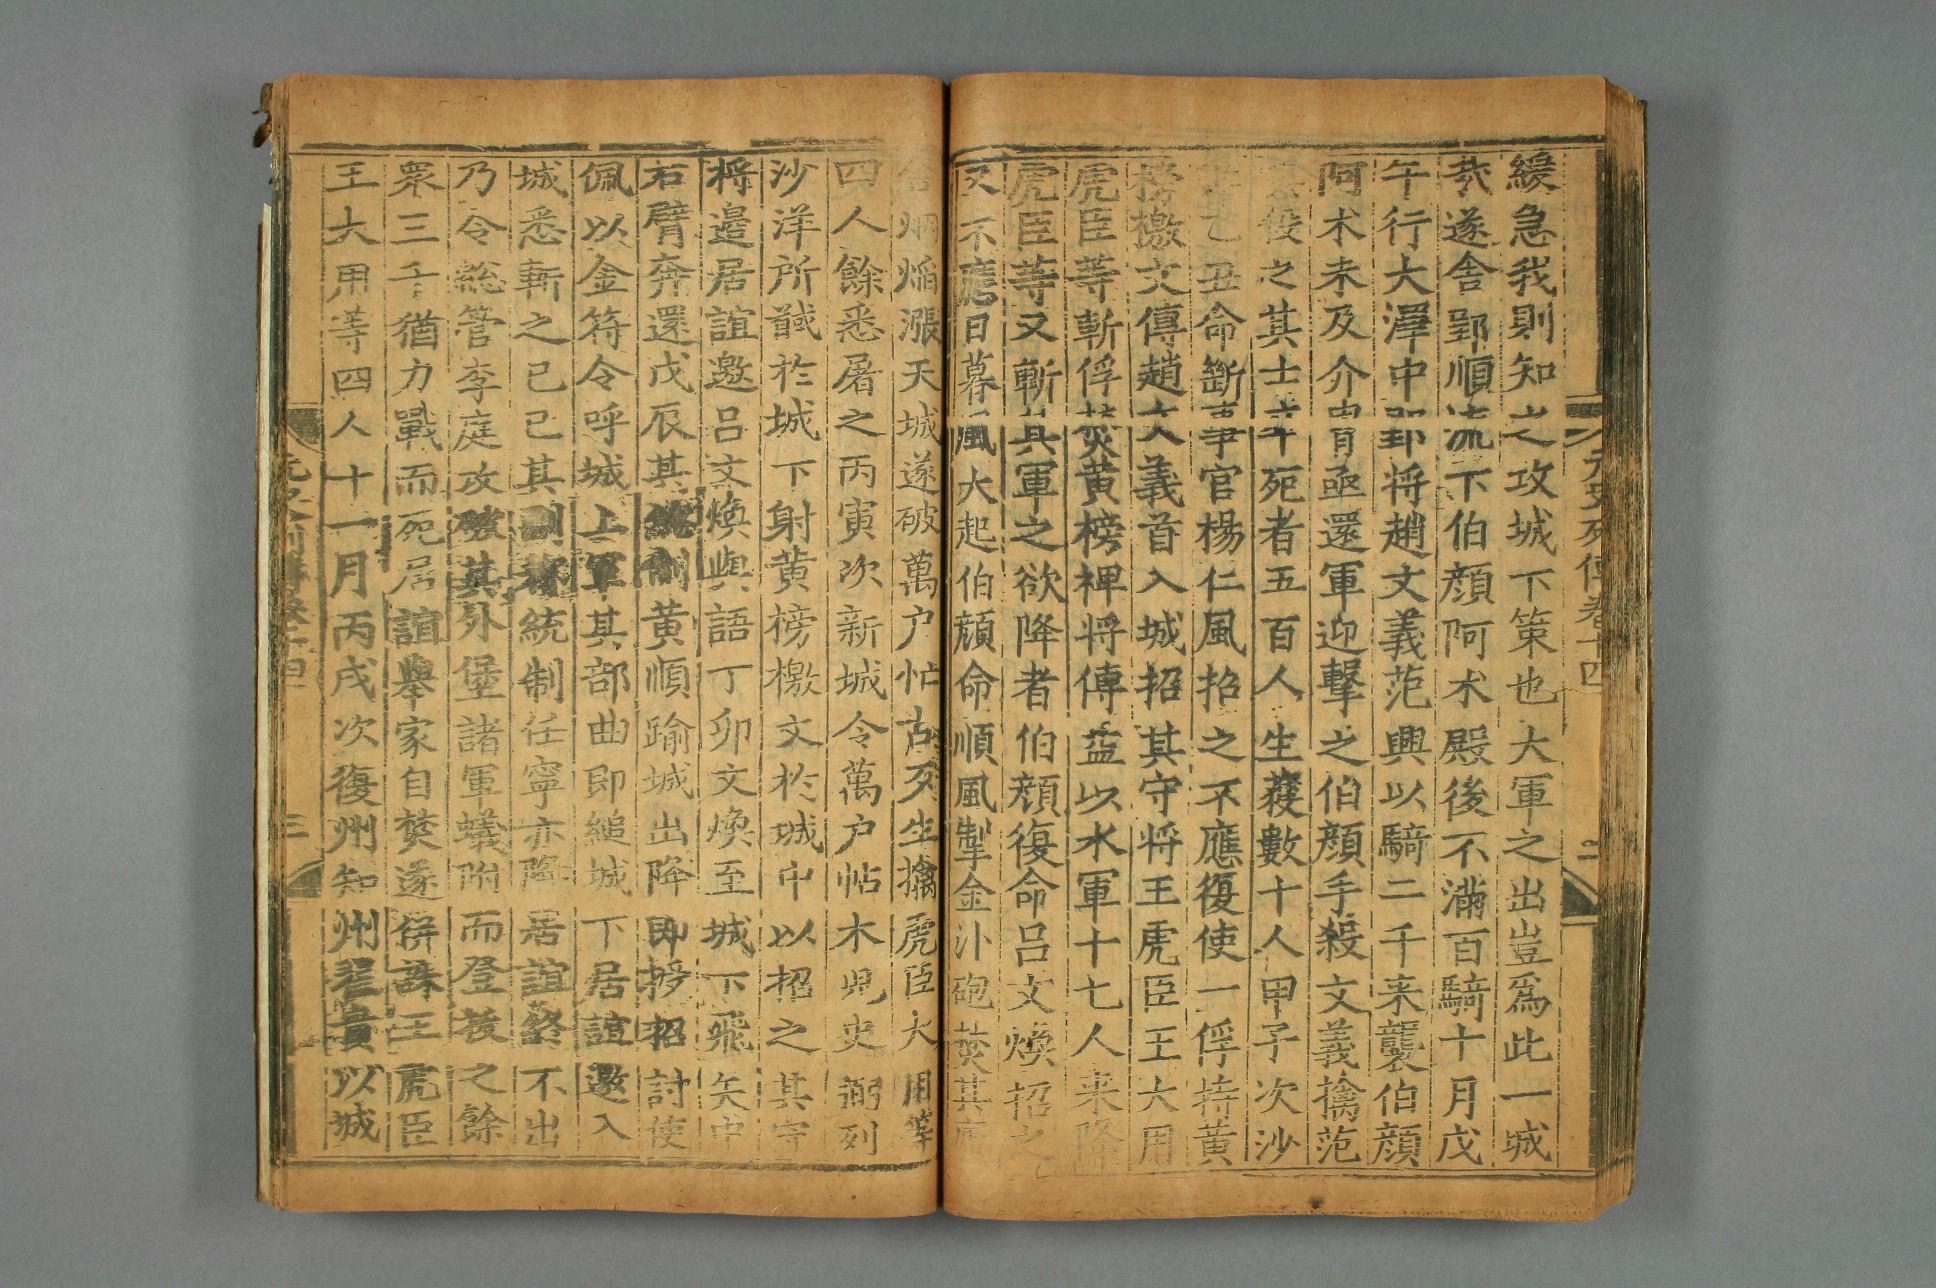 元史列傳卷十四
二
緩急我則知之攻城下策也大軍之出豈爲此一城
哉遂舍郢順流下伯顔阿朮殿後不滿百騎十月戊
午行大澤中郢將趙文義范興以騎二千来襲伯顔
阿朮未及介冑亟還軍迎擊之伯顔手殺文義擒范
役之其士卒死者五百人生獲數十人甲子次沙
丑命斷事官楊仁風招之不應復使一俘持黄
榜檄文傳趙文義首入城招其守將王虎臣王大用
虎臣等斬俘焚黄榜裨將傅益以水軍十七人来降
虎臣等又斬其軍之欲降者伯顔復命呂文煥招之
又不應日暮風大起伯顔命順風掣金汁砲焚其
烟焰漲天城遂破萬户忙古歹生擒虎臣大用等
四人餘悉屠之丙寅次新城令萬户帖木児史弼列
沙洋所馘於城下射黄榜檄文於城中以招之其守
將邉居誼邀呂文煥與語丁卯文煥至城下飛矢中
右臂奔還戊辰其統制黄順踰城出降即授招討使
佩以金符令呼城上軍其部曲即縋城下居誼邀入
城悉斬之己巳其副都統制任寧亦降居誼終不出
乃令総管李庭攻破其外堡諸軍蟻附而登㧞之餘
衆三千猶力戰而死居誼舉家自焚遂併誅王虎臣
王大用等四人十一月丙戌次復州知州翟貴以城
元史列傳卷十四
三